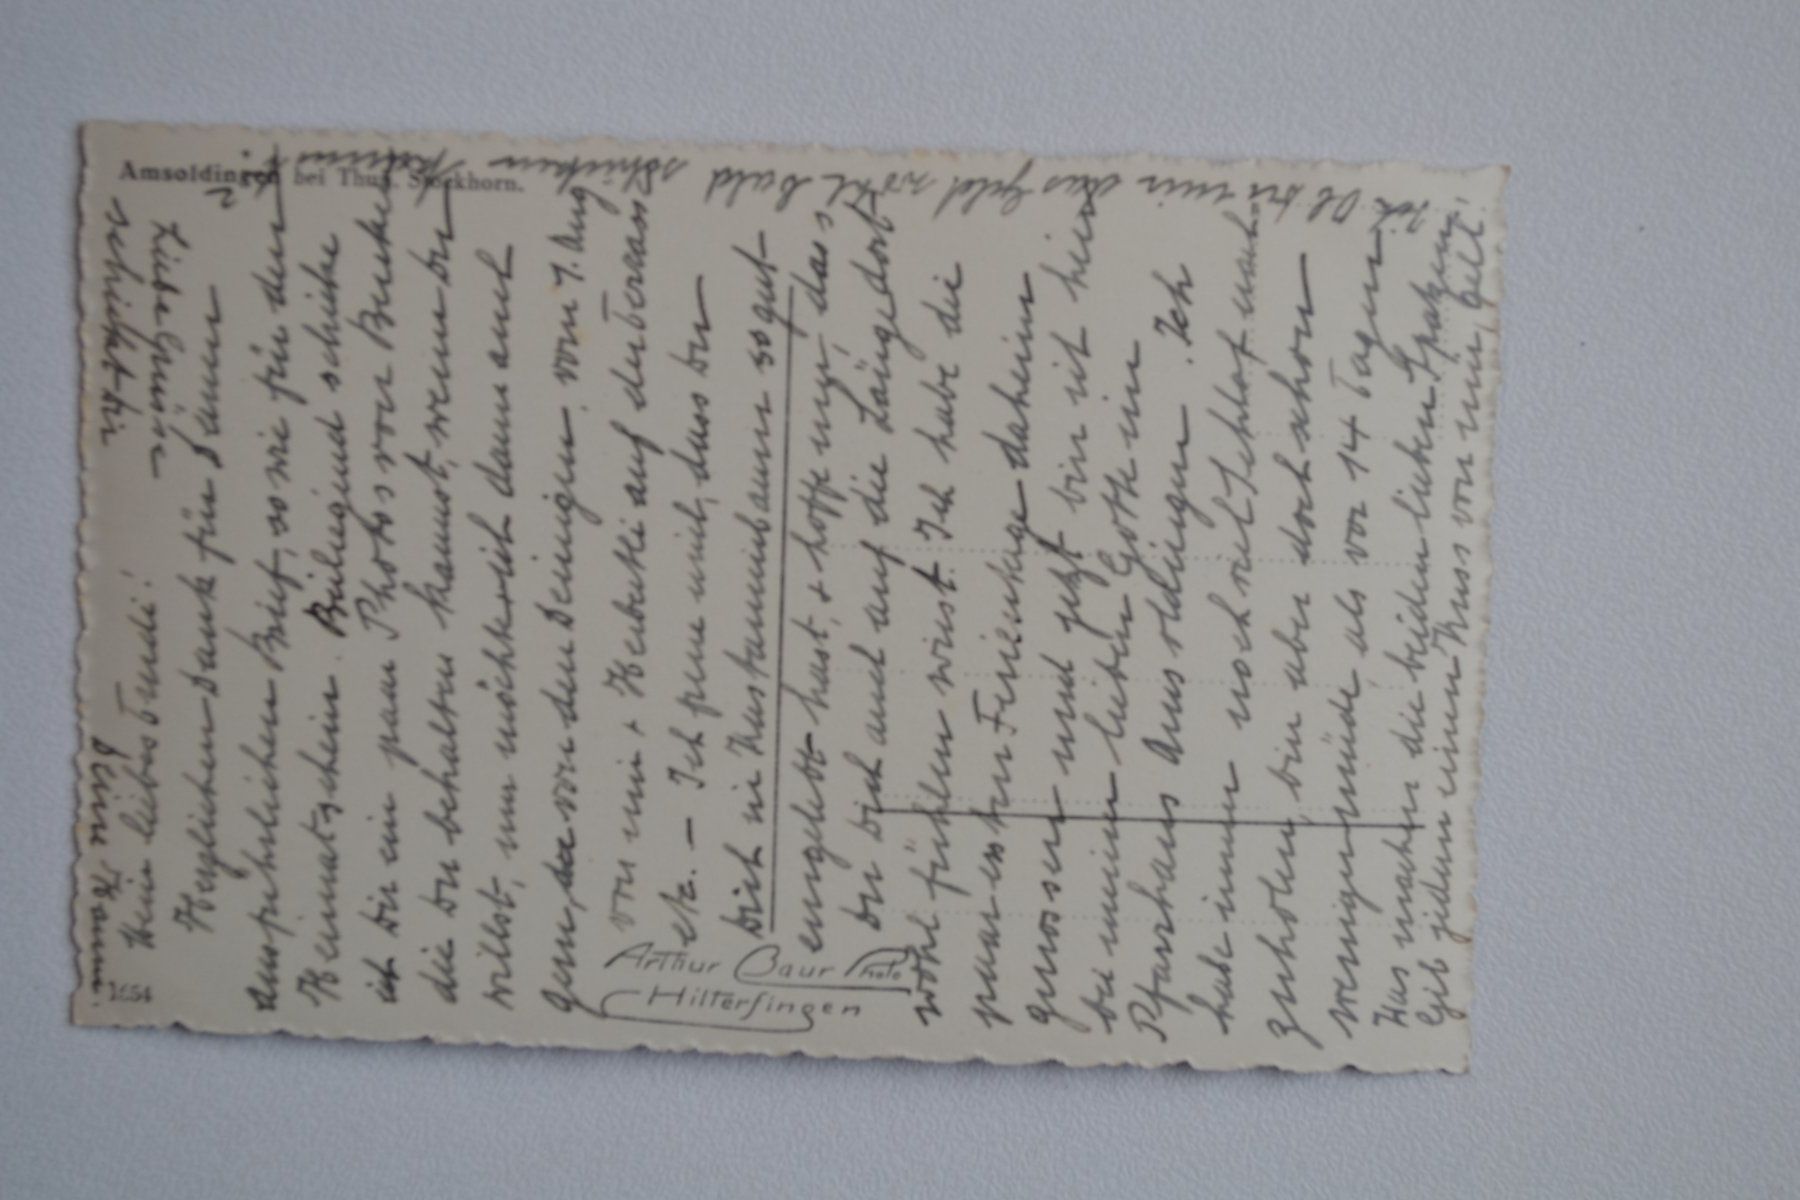 Amsoldingen bei Thun. Stockhorn.
1654
Arthur Baur Photo
Hilterfingen
Mein liebes Trudi!
Herzlichen Dank für Deinen
ausführlichen Brief, sowie für den
Heimatschein. Beiliegend schicke
ich Dir ein paar Photos von
die Du behalten kannst, wenn Du
willst, nur möchte ich dann auch
gern, von den Deinigen. vom 1. Aug
von mir + Heubutli auf der Terrasse
etc. – Ich freue mich, dass Du
Dich in Kastanienbaum so gut
eingelebt hast, + hoffe nur, dass
Du dich auch auf die Länge dort
wohl fühlen wirst. Ich habe die
paar Ferientage daheim
genossen und jetzt bin ich hier
bei meiner lieben Gotte im
Pfarrhaus Amsoldingen. Ich
habe immer noch viel Schlaf nach-
zuholen, bin aber doch schon
weniger müde, als vor 14 Tagen.
Was machen die beiden lieben Spatzen?
Gib jedem einen Kuss von mir, gelt.
Ob Du mir das Geld wohl bald schicken kannst?
Liebe Grüsse
schickt Dir
Deine